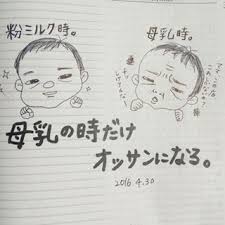 粉ミルク時。
母乳時。
母乳の時だけ
オッサンになる。
2016.4.30